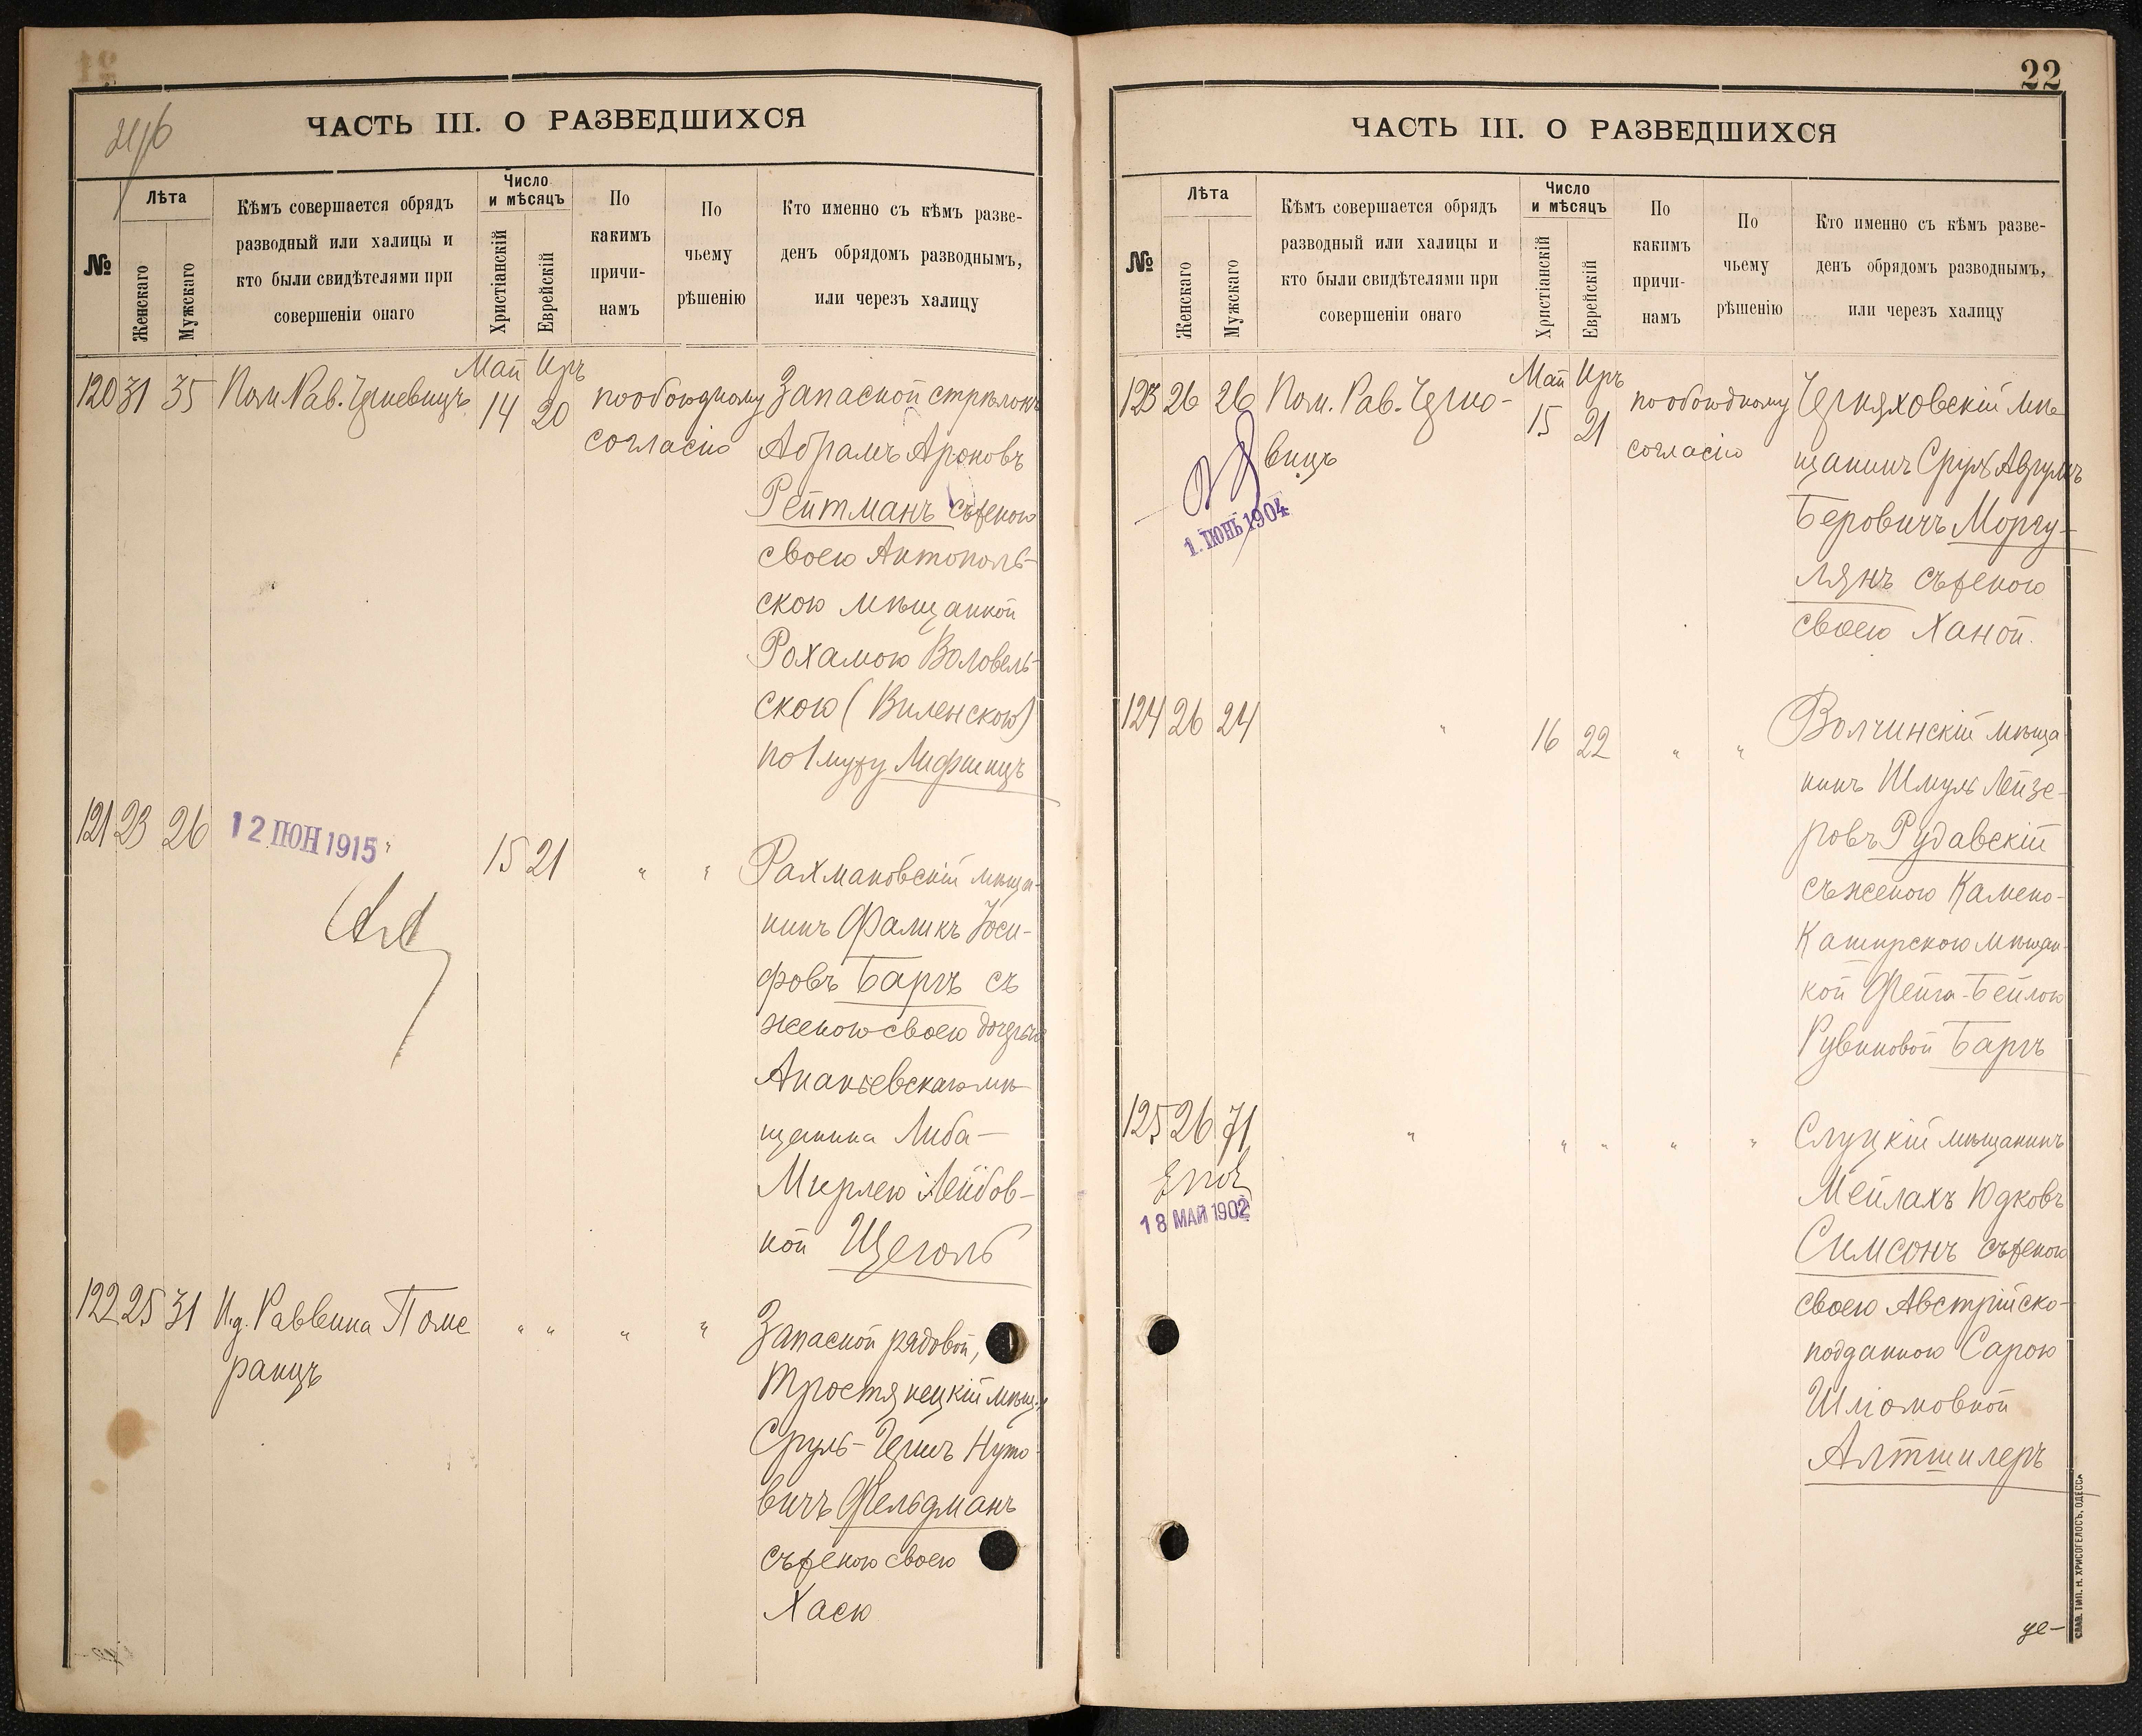 ЧАСТЬ III. О РАЗВЕДШИХСЯ
№
Лѣта
Женскаго
Мужскаго
Кѣмъ совершается обрядъ
разводный или халицы и
кто были свидѣтелями при
совершеніи онаго
Число
и мѣсяцъ
Христіанскій
Еврейскій
По
какимъ
причи-
намъ
По
чьему
рѣшенію
Кто именно съ кѣмъ разве-
денъ обрядомъ разводнымъ,
или черезъ халицу
Май Иръ
120 31 35 Пом. Рав. 14 20 по обоюдному
согласію
Запасной стрѣлокъ
Абрамъ Ароновъ
Рейтманъ съ женою
своею Антополь-
скою мѣщанкой
Рохамою Воловель-
скою (Виленскою)
по 1 мужу Лифшицъ
121 23 26 " 15 21 " "
12 ІЮН 1915
Рахмановскій мѣща-
нинъ Фаликъ Іоси-
фовъ Баргъ съ
женою своею дочерью
Ананьевскаго мѣ-
щанина Либа-
Мирлею Лейбов-
ной Щеголь
122 25 31 И.д. Раввина Поме
ранцъ
" " " "
Запасной рядовой,
Тростянецкій мѣщ.
Сруль- Нуто-
вичъ Фельдманъ
съ женою своею
Хаею
22
ЧАСТЬ III. О РАЗВЕДШИХСЯ
№
Лѣта
Женскаго
Мужскаго
Кѣмъ совершается обрядъ
разводный или халицы и
кто были свидѣтелями при
совершеніи онаго
Число
и мѣсяцъ
Христіанскій
Еврейскій
По
какимъ
причи-
намъ
По
чьему
рѣшенію
Кто именно съ кѣмъ разве-
денъ обрядомъ разводнымъ,
или черезъ халицу
Май Иръ
123 26 26 Пом. Рав. 15 21 по обоюдному
согласію
1. ІЮНЬ 1904
Черняховскій мѣ-
щанинъ Сруль Аврумъ
Беровичъ Моргу-
лянъ съ женою
своею Ханой.
124 26 24 " 16 22 " "
Волчинскій мѣща-
нинъ Шмуль Лейзе-
ровъ Рудавскій
съ женою Камено-
Каширскою мѣщан-
кой Фейга-Бейлою
Рувиновой Баргъ
125 26 71 " " " " "
18 МАЙ 1902
Слуцкій мѣщанинъ
Мейлахъ Юдковъ
Симсонъ съ женою
своею Австрійско-
подданною Сарою
Шліомовной
Алтшилеръ
СЛАВ. ТИП. Н. ХРИСОГЕЛОСЪ, ОДЕССА